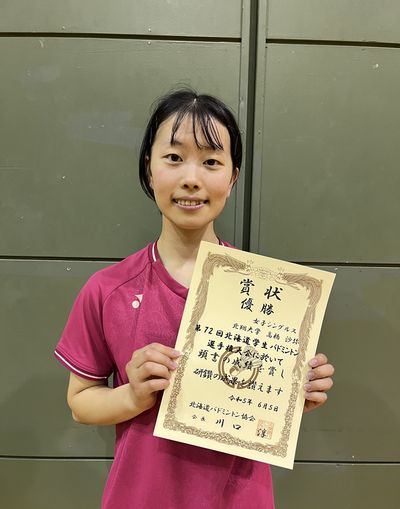 賞状
優勝
女子シングルス
北翔大学 高橋 沙妹
第72回北海道学生バドミントン
選手権大会に於いて
頭書の成績を賞し
研鑽の成果を讃えます
令和5年6月5日
北海道バドミントン協会
会長 川口